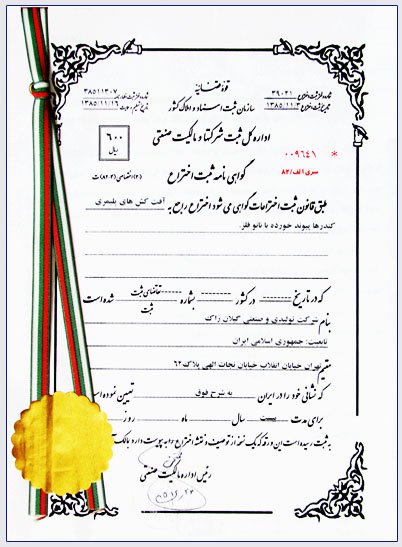 قوهٔ قضائیه
سازمان ثبت اسناد و املاک کشور
شماره دفتر ثبت اختراع ۳۹۰۳۱
تاریخ ثبت اختراع ۱۳۸۵/۱۱/۳
۳۸۵۱۱۳۰۷
۱۳۸۵/۱۱/۱۶
اداره کل ثبت شرکتها و مالکیت صنعتی
۶۰۰
ریال
* ۰۰۹۶۴۱
سری الف/۸۲
گواهی نامه ثبت اختراع
طبق قانون ثبت اختراعات گواهی می شود اختراع راجع به آفت کش های پلیمری
کندرها پیوند خورده با نانو فلز
که در تاریخ در کشور بشماره تقاضای ثبت شده است
ثبت
بنام شرکت تولیدی و صنعتی گیلان راک
تابعیت: جمهوری اسلامی ایران
مقیم تهران خیابان انقلاب خیابان نجات الهی پلاک ۶۲
که نشانی خود را در ایران به شرح فوق تعیین نموده
برای مدت بیست سال ماه روز
به ثبت رسیده است این ورقه که یک نسخه از توصیف و نقشه اختراع را به پیوست دارد
رئیس اداره مالکیت صنعتی